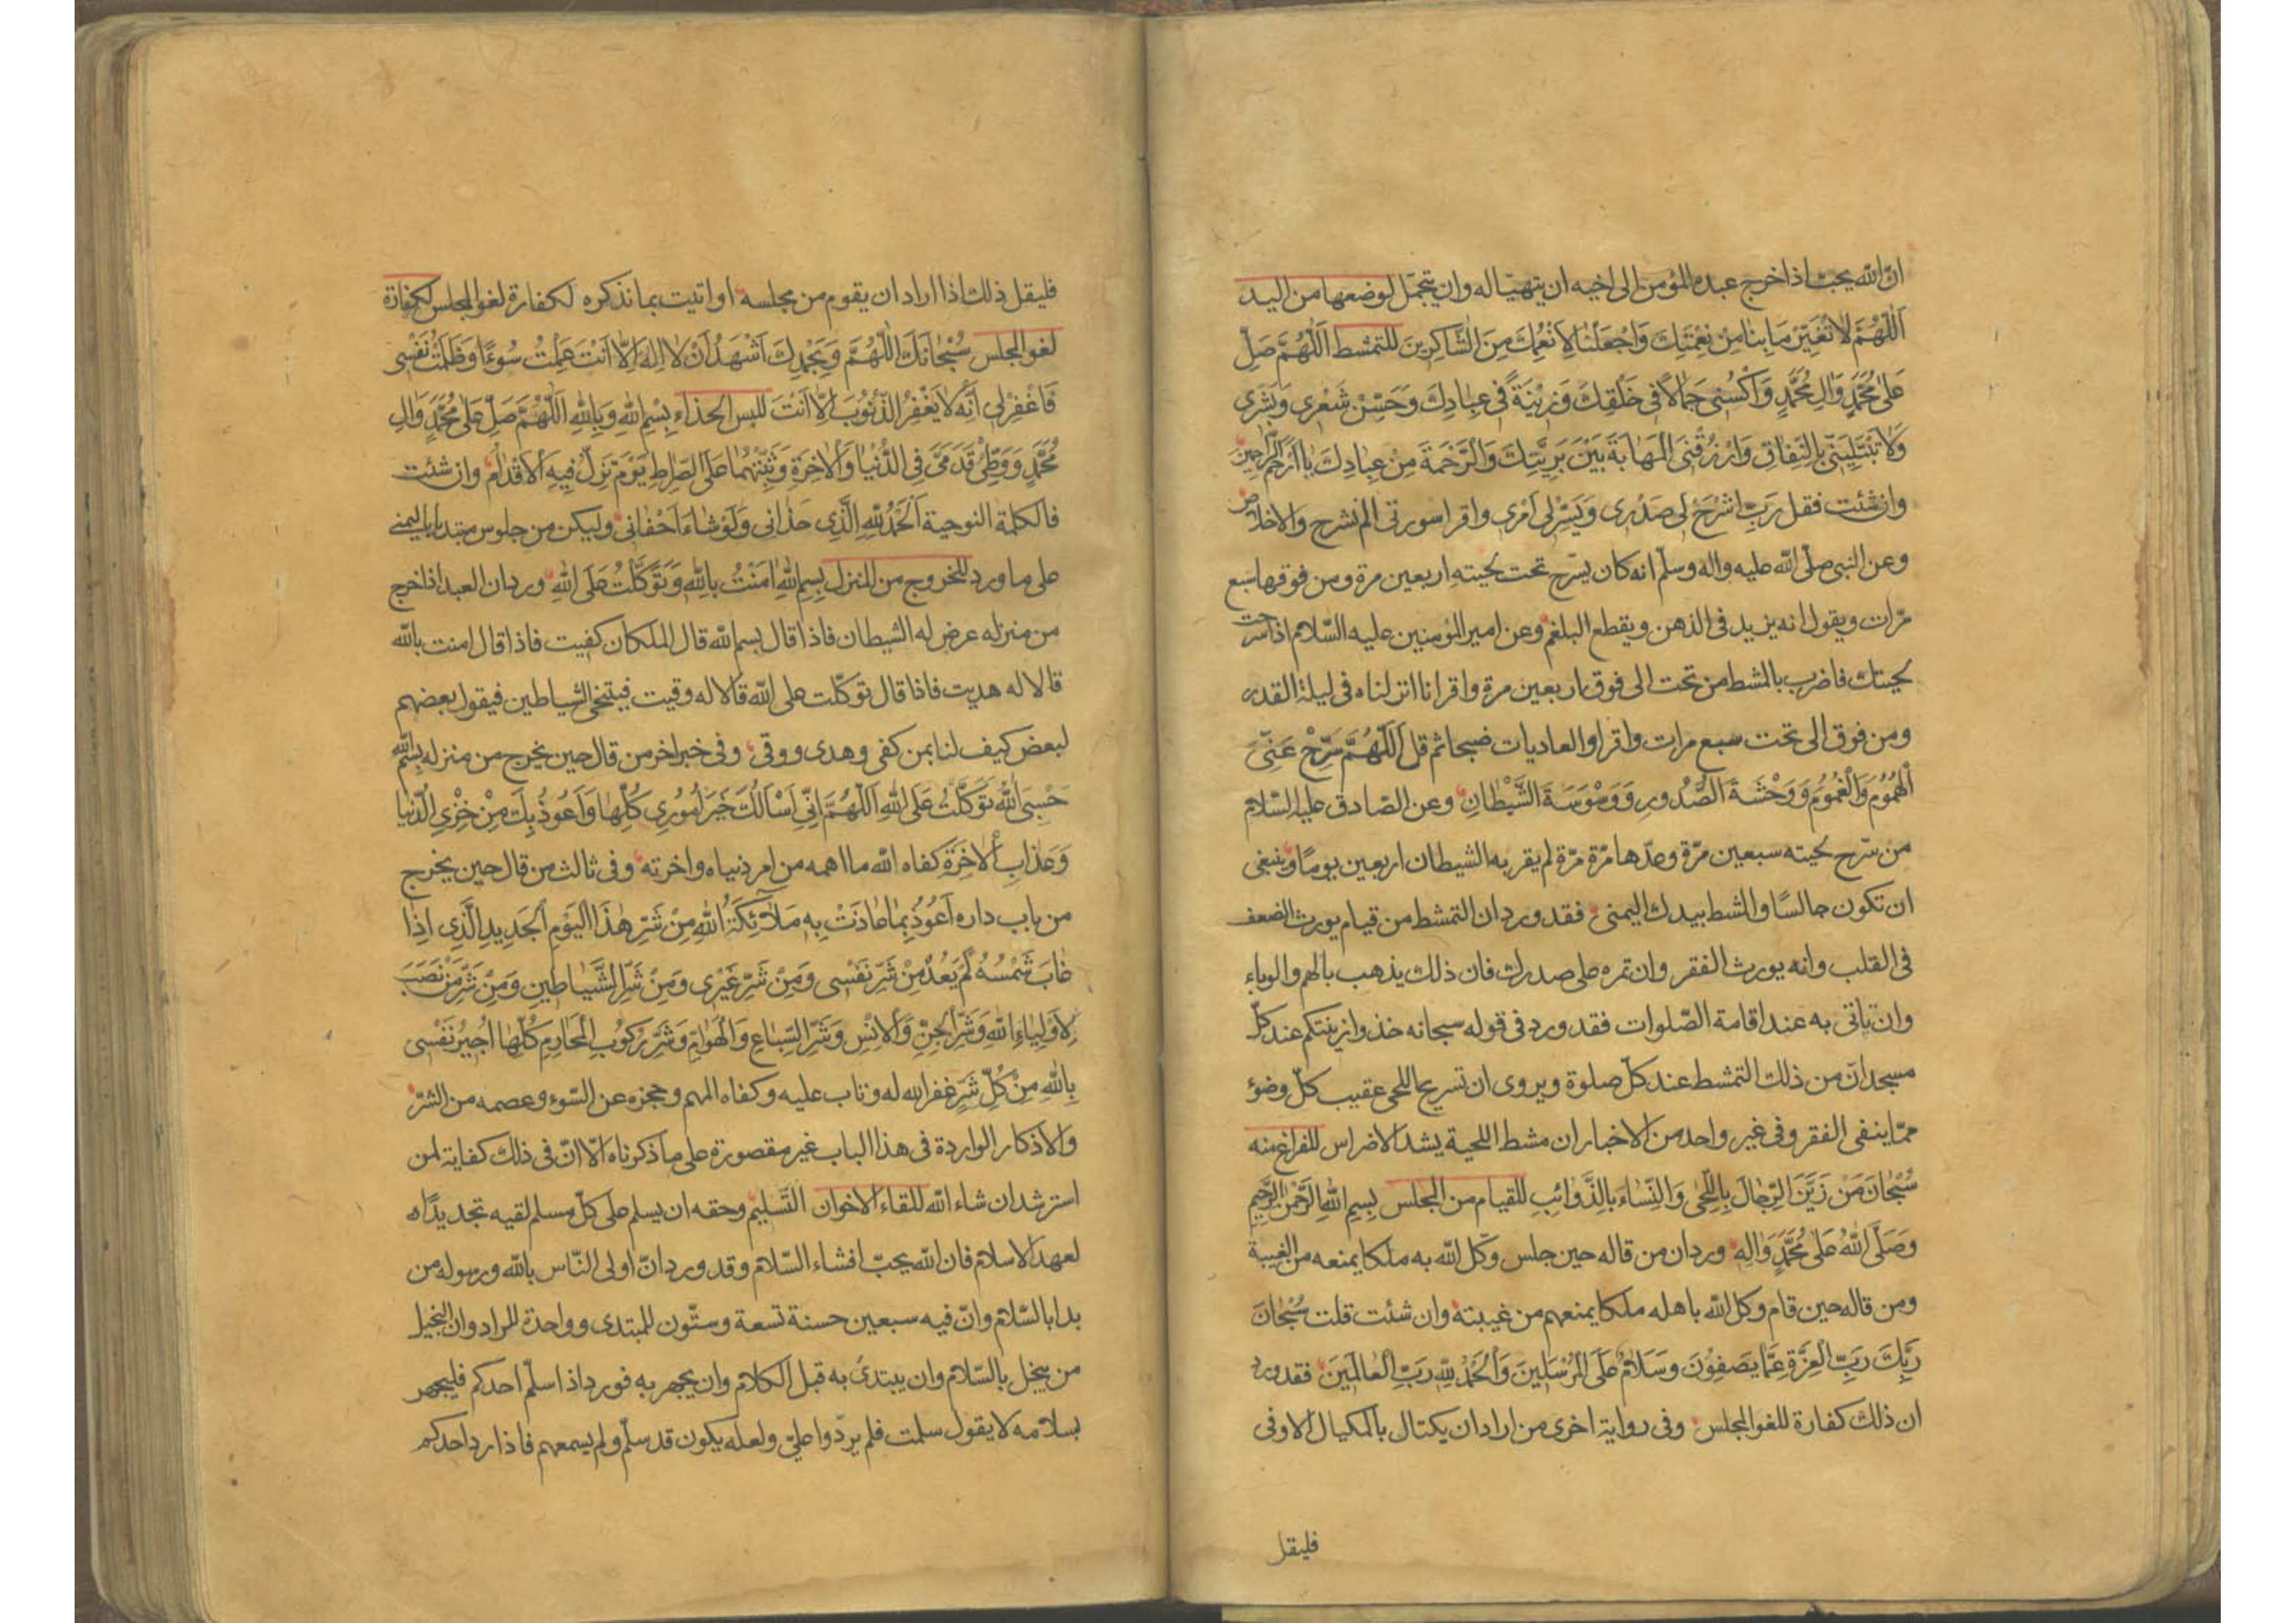 ان الله يحب اذا خرج عبده المؤمن الى اخيه ان يتهيأ له وان يتجمل لوضعها من اليد
اَللّٰهُمَّ لا تُغَيِّرْ مَا بِنَا مِنْ نِعْمَتِكَ وَاجْعَلْنَا لِاَنْعُمِكَ مِنَ الشَّاكِرِينَ للتمشط اَللّٰهُمَّ صَلِّ
عَلىٰ مُحَمَّدٍ وَاٰلِ مُحَمَّدٍ وَاكْسُنِى جَمَالاً فى خَلْقِكَ وَزِيْنَةً فى عِبَادِكَ وَحَسِّنْ شَعْرِى وَبَشَرِى
وَلا تَبْتَلِيَنِّى بِالنِّفَاقِ وَارْزُقْنِى الْمَهَابَةَ بَيْنَ بَرِيَّتِكَ وَالرَّحْمَةَ مِنْ عِبَادِكَ يَا اَرْحَمَ الرَّاحِمِينَ
وان شئت فقل رَبِّ اشْرَحْ لى صَدْرِى وَيَسِّرْ لى اَمْرِى واقرا سورتى الم نشرح والاخلاص
وعن النبى صلّى الله عليه واله وسلّم انه كان يسرّح تحت لحيته اربعين مرة ومن فوقها سبع
مرّات ويقول انه يزيد فى الذهن ويقطع البلغم وعن امير المؤمنين عليه السّلام اذا سرحت
لحيتك فاضرب بالمشط من تحت الى فوق اربعين مرة واقرا انا انزلناه فى ليلة القدر
ومن فوق الى تحت سبع مرات واقرا والعاديات ضبحا ثم قل اَللّٰهُمَّ سَرِّحْ عَنِّى
الْهُمُوْمَ وَالْغُمُوْمَ وَوَحْشَةَ الصُّدُورِ وَوَسْوَسَةَ الشَّيْطَانِ وعن الصّادق عليه السّلام
من سرّح لحيته سبعين مرّة وعدّها مرّة مرّة لم يقربه الشيطان اربعين يومًا وينبغى
ان تكون جالسًا والمشط بيدك اليمنى فقد ورد ان التمشط من قيام يورث الضعف
فى القلب وانه يورث الفقر وان تمره على صدرك فان ذلك يذهب بالهم والوباء
وان تاتى به عند اقامة الصّلوات فقد ورد فى قوله سبحانه خذوا زينتكم عند كلّ
مسجد انّ من ذلك التمشط عند كلّ صلوة ويروى ان تسريح اللحى عقيب كلّ وضوء
ممّا ينفى الفقر وفى غير واحد من الاخبار ان مشط اللحية يشد الاضراس للفراغ منه
سُبْحَانَ مَنْ زَيَّنَ الرِّجَالَ بِاللِّحٰى وَالنِّسَاءَ بِالذَّوَائِبِ للقيام من المجلس بِسْمِ اللهِ الرَّحْمٰنِ الرَّحِيْمِ
وَصَلَّى اللهُ عَلىٰ مُحَمَّدٍ وَاٰلِهِ ورد ان من قاله حين جلس وكّل الله به ملكا يمنعه من الغيبة
ومن قاله حين قام وكل الله باهله ملكا يمنعهم من غيبته وان شئت قلت سُبْحَانَ
رَبِّكَ رَبِّ الْعِزَّةِ عَمَّا يَصِفُوْنَ وَسَلَامٌ عَلَى الْمُرْسَلِينَ وَالْحَمْدُ لِلّٰهِ رَبِّ الْعَالَمِينَ فقد ورد
ان ذلك كفارة للغو المجلس وفى رواية اخرى من اراد ان يكتال بالمكيال الاوفى
فليقل
فليقل ذلك اذا اراد ان يقوم من مجلسه او اتيت بما نذكره لكفارة لغو المجلس لكفارة
لغو المجلس سُبْحَانَكَ اللّٰهُمَّ وَبِحَمْدِكَ اَشْهَدُ اَنْ لا اِلٰهَ اِلاَّ اَنْتَ عَمِلْتُ سُوءًا وَظَلَمْتُ نَفْسِى
فَاغْفِرْلى اِنَّهُ لا يَغْفِرُ الذُّنُوبَ اِلاَّ اَنْتَ للبس الحذاء بِسْمِ اللهِ وَبِاللهِ اَللّٰهُمَّ صَلِّ عَلىٰ مُحَمَّدٍ وَاٰلِ
مُحَمَّدٍ وَوَطِّئْ قَدَمَىَّ فِى الدُّنْيَا وَالْاٰخِرَةِ وَثَبِّتْهُمَا عَلَى الصِّرَاطِ يَوْمَ تَزِلُّ فِيهِ الْاَقْدَامُ وان شئت
فالكلمة النوحية اَلْحَمْدُ لِلّٰهِ الَّذِى حَذَانى وَلَوْ شَاءَ اَحْفَانى وليكن من جلوس مبتديا باليمنى
على ما ورد للخروج من المنزل بِسْمِ اللهِ اٰمَنْتُ بِاللهِ وَتَوَكَّلْتُ عَلَى اللهِ ورد ان العبد اذا خرج
من منزله عرض له الشيطان فاذا قال بسم الله قال الملكان كفيت فاذا قال امنت بالله
قالا له هديت فاذا قال توكّلت على الله قالا له وقيت فيتنحى الشياطين فيقول بعضهم
لبعض كيف لنا بمن كفى وهدى ووقى وفى خبر اخر من قال حين يخرج من منزله بِسْمِ اللهِ
حَسْبِىَ اللهُ تَوَكَّلْتُ عَلَى اللهِ اَللّٰهُمَّ اِنِّى اَسْاَلُكَ خَيْرَ اُمُورِى كُلِّهَا وَاَعُوذُ بِكَ مِنْ خِزْىِ الدُّنْيَا
وَعَذَابِ الْاٰخِرَةِ كفاه الله ما اهمه من امر دنياه واخرته وفى ثالث من قال حين يخرج
من باب داره اَعُوْذُ بِمَا عَاذَتْ بِهِ مَلَائِكَةُ اللهِ مِنْ شَرِّ هٰذَا الْيَوْمِ الْجَدِيدِ الَّذِى اِذَا
غَابَ شَمْسُهُ لَمْ يَعُدْ مِنْ شَرِّ نَفْسِى وَمِنْ شَرِّ غَيْرِى وَمِنْ شَرِّ الشَّيَاطِينِ وَمِنْ شَرِّ مَنْ نَصَبَ
لِاَوْلِيَاءِ اللهِ وَشَرِّ الْجِنِّ وَالْاِنْسِ وَشَرِّ السِّبَاعِ وَالْهَوَامِّ وَشَرِّ رُكُوبِ الْمَحَارِمِ كُلِّهَا اُجِيْرُ نَفْسِى
بِاللهِ مِنْ كُلِّ شَرٍّ غفر الله له وتاب عليه وكفاه المهم وحجزه عن السّوء وعصمه من الشرّ
والاذكار الواردة فى هذا الباب غير مقصورة على ما ذكرناه الّا انّ فى ذلك كفاية لمن
استرشد ان شاء الله للقاء الاخوان التّسليم وحقه ان يسلم على كلّ مسلم لقيه تجديدًا
لعهد الاسلام فان الله يحبّ افشاء السّلام وقد ورد انّ اولى النّاس بالله ورسوله من
بدا بالسّلام وانّ فيه سبعين حسنة تسعة وستّون للمبتدى وواحدة للراد وان البخيل
من يبخل بالسّلام وان يبتدئ به قبل الكلام وان يجهر به فورد اذا سلّم احدكم فليجهر
بسلامه لا يقول سلمت فلم يردّوا علىّ ولعله يكون قد سلّم ولم يسمعهم فاذا رد احدكم